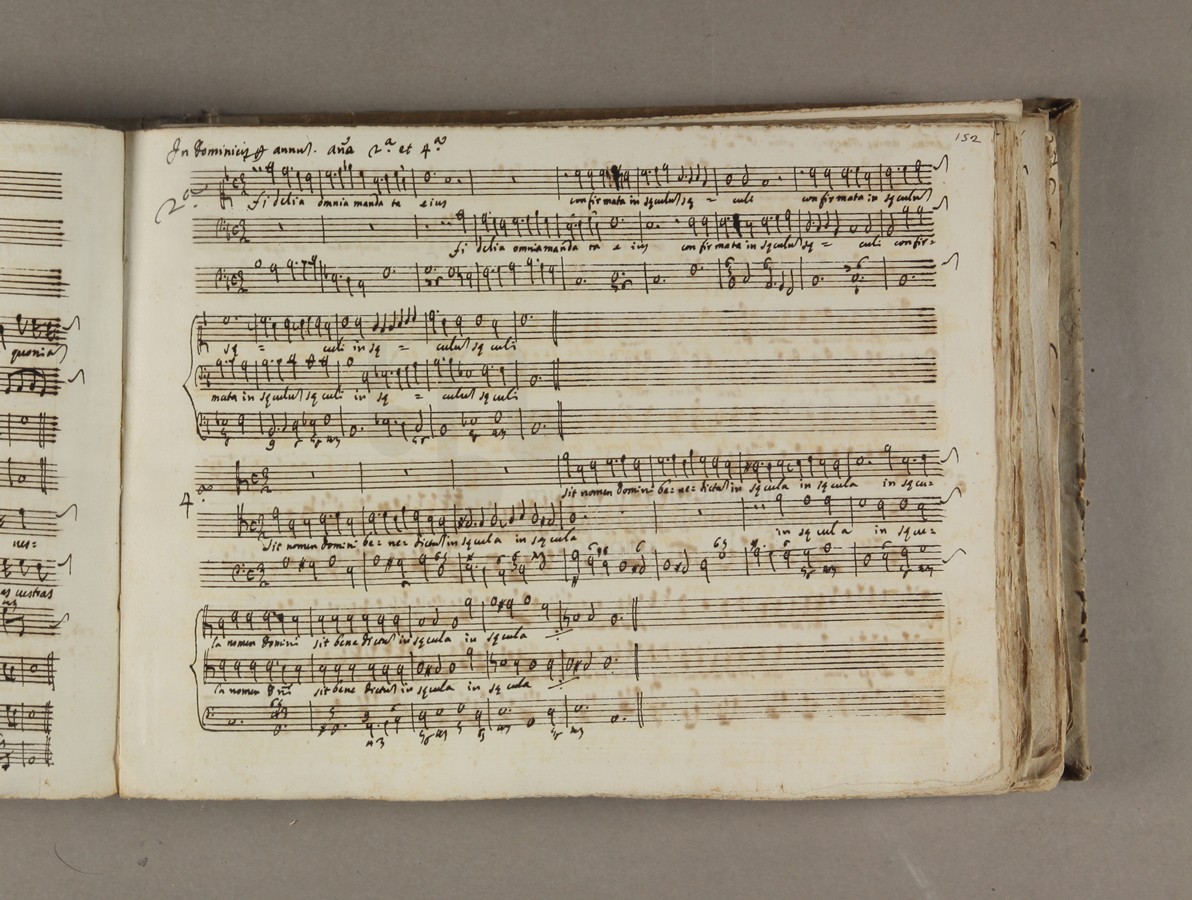 152
In Dominicis annuŝ. aña 2.ª et 4.ª
2.ª
fidelia omnia manda ta eius confirmata in sęculuʃ sę = culi confirmata in sęculuʃ
fidelia omnia manda ta e ius confirmata in sęculuʃ sę = culi confir=
sę = culi in sę = culuʃ sę culi
mata in sęculuʃ sę culi in sę = culuʃ sę culi
4.ª
sit nomen domini be= ne= dictuʃ in sęcula in sęcula in sęcu=
Sit nomen domini be= ne= dictuʃ in sęcula in sęcula in sęcula in sęcu=
la nomen Domini sit bene dictuʃ in sęcula in sęcula
la nomen Dñi sit bene dictuʃ in sęcula in sę cula
quonia
nes=
es uestras